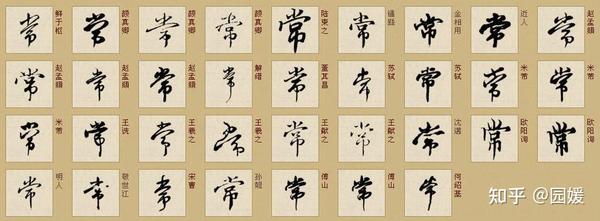 常 鲜于枢 常 颜真卿 常 颜真卿 常 颜真卿 常 陆柬之 常 常 金相用 常 近人 常 赵孟頫
常 赵孟頫 常 赵孟頫 常 赵孟頫 常 解缙 常 董其昌 常 苏轼 常 苏轼 常 米芾 常 米芾
常 米芾 常 王诜 常 王羲之 常 王羲之 常 王献之 常 王献之 常 沈辽 常 欧阳询 常 欧阳询
常 明人 常 敬世江 常 宋曹 常 孙虔礼 常 傅山 常 傅山 常 何绍基
知乎 @园媛